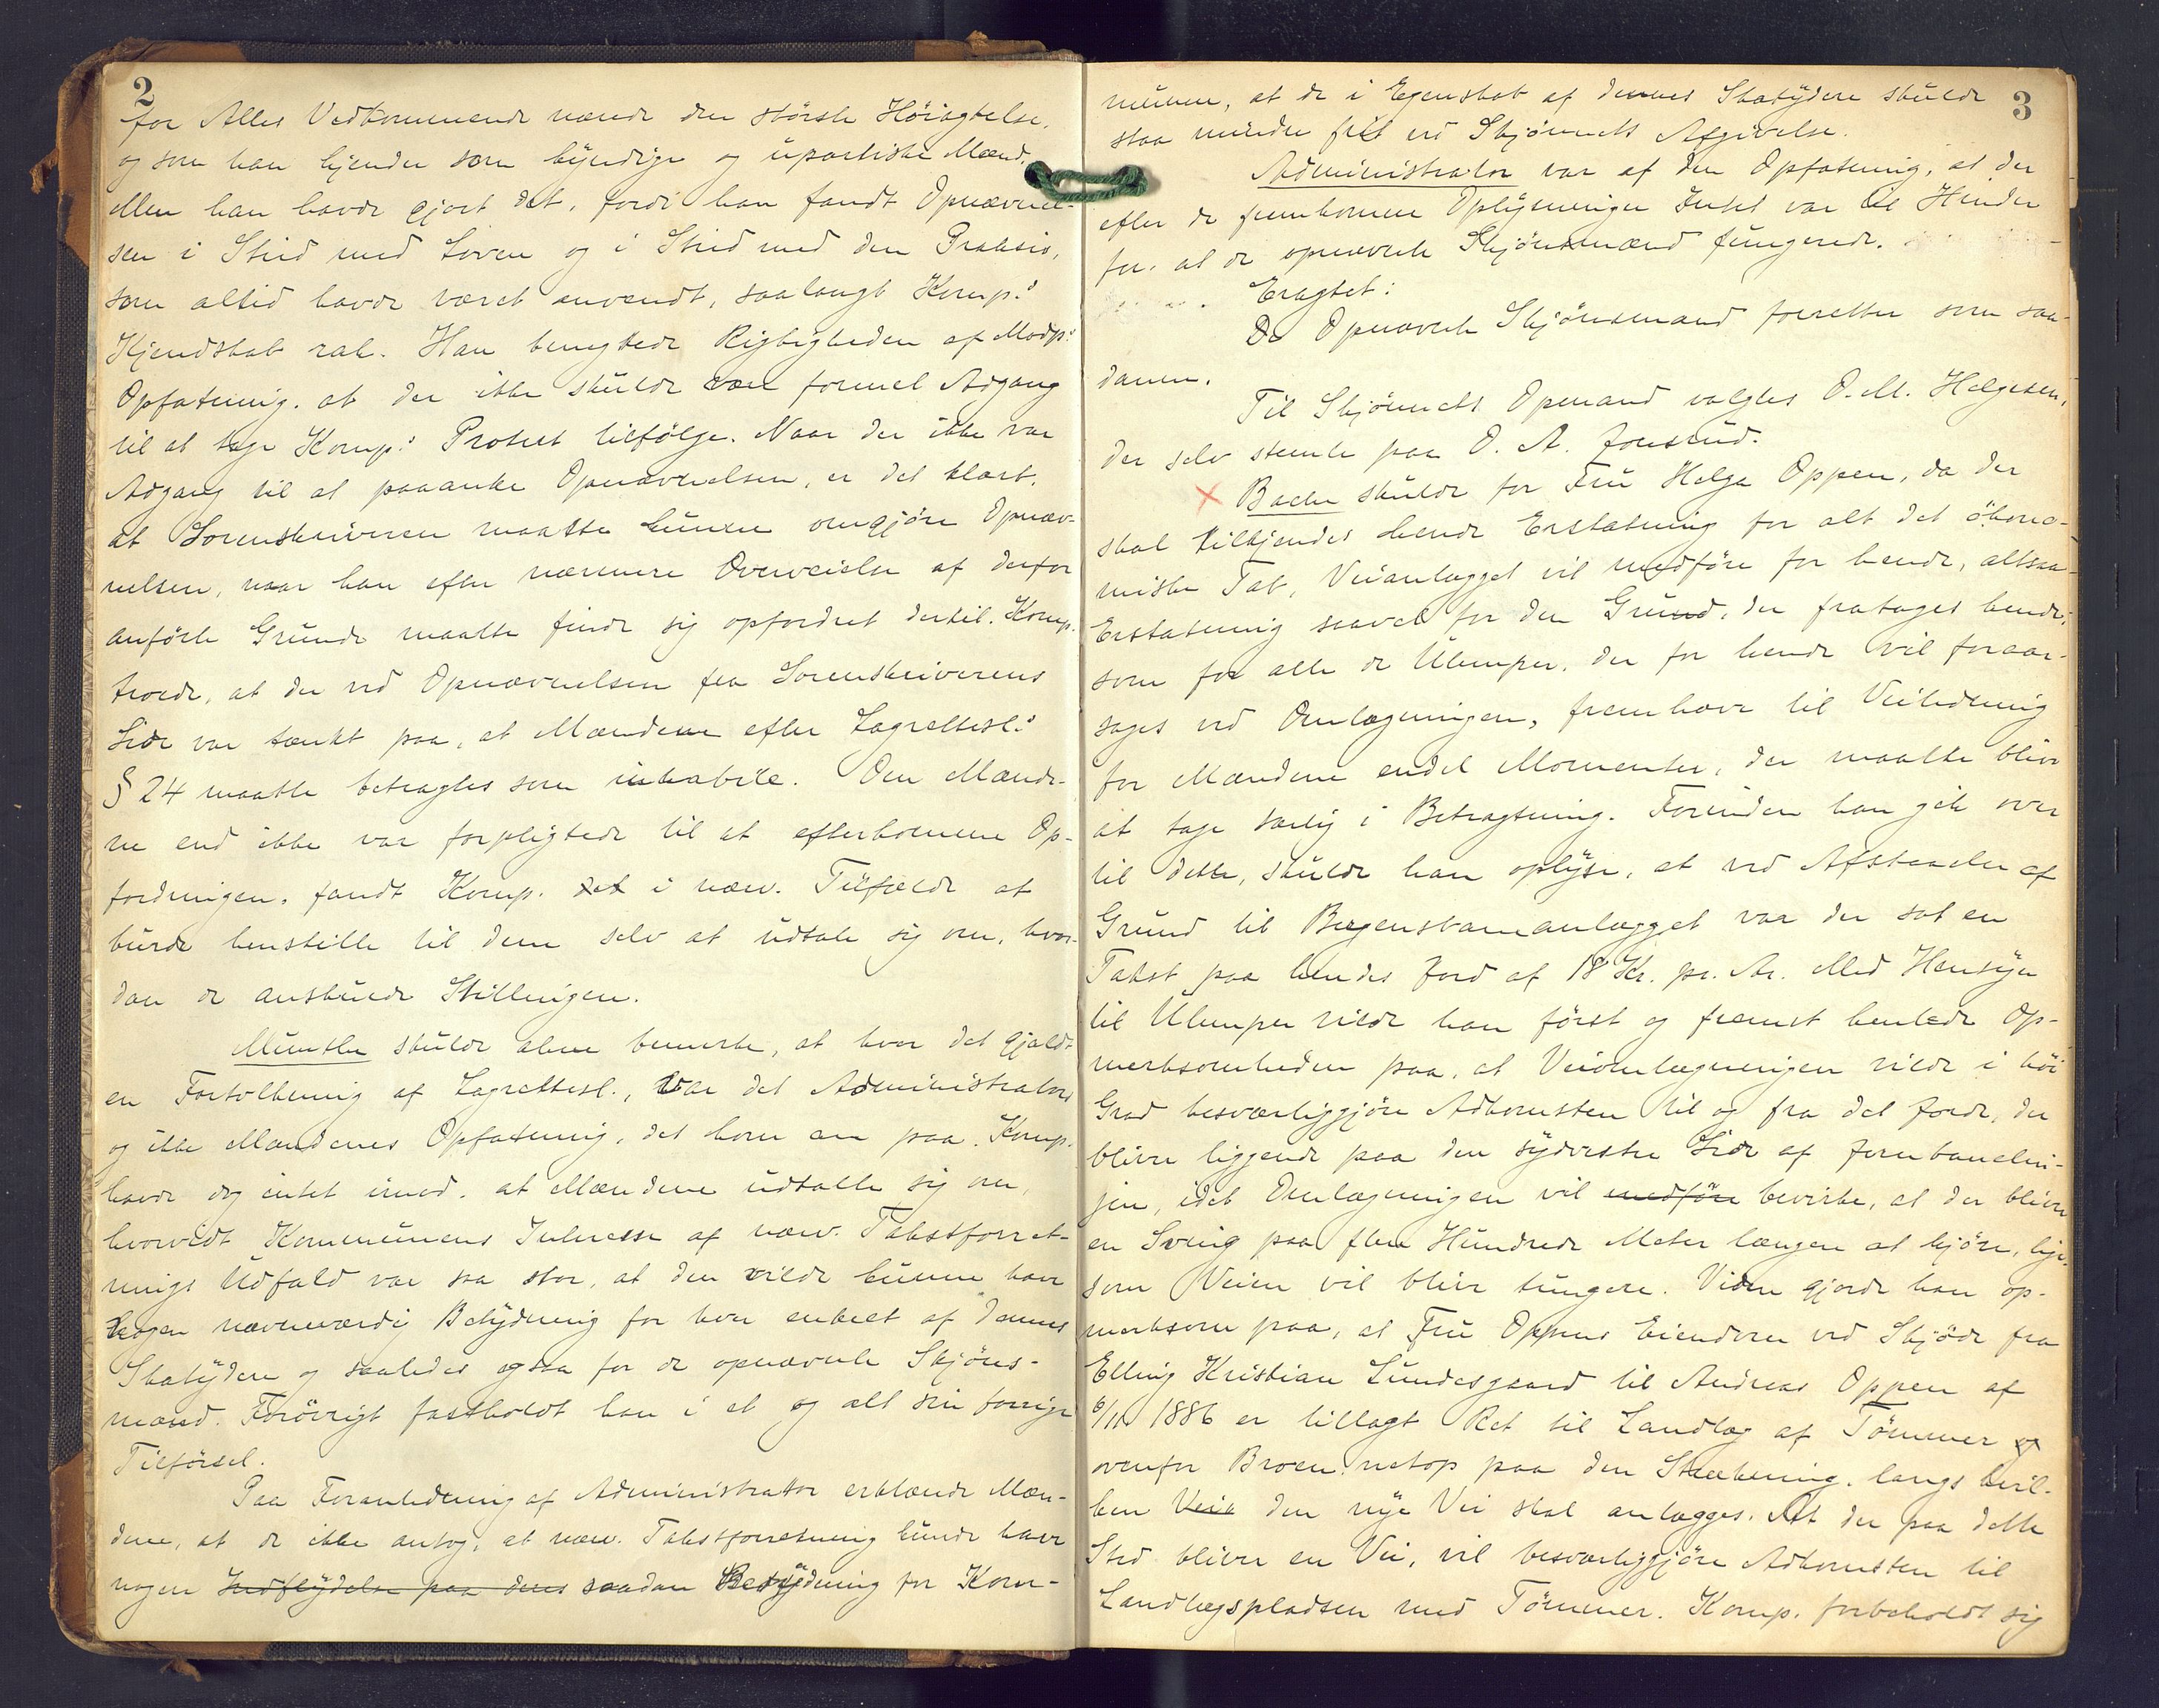 2
for Alles Vedkommende nærede den störste Höiagtelse,
og som han kjender som kyndige og upartiske Mænd.
Men han havde gjort det, fordi han fandt Opnævnel-
sen i Strid med Loven og i Strid med den Praksis,
som altid havde været anvendt, saalangt Komp.s
Kjendskab rak. Han benegtede Rigtigheden af Modp.s
Opfatning, at der ikke skulde være formel Adgang
til at tage Komp.s Protest tilfölge. Naar der ikke var
Adgang til at paaanke Opnævnelsen, er det klart,
at Sorenskriveren maatte kunne omgjöre Opnæv-
nelsen, naar han efter nærmere Overveielse af derfor
anförte Grunde maatte finde sig opfordret dertil. Komp.
troede, at der ved Opnævnelsen fra Sorenskriverens
Side var tænkt paa, at Mændene efter Lagrettesl.s
§ 24 maatte betragtes som inhabile. Om Mænde-
ne end ikke var forpligtede til at efterkomme Op-
fordringen, fandt Komp. det i nærv. Tilfælde at
burde henstille til dem selv at udtale sig om, hvor-
dan de anskuede Stillingen.
Munthe skulde alene bemerke, at hvor det gjaldt
en Fortolkning af Lagrettesl., var det Administrators
og ikke Mændenes Opfatning, det kom an paa. Komp.
havde dog intet imod, at Mændene udtalte sig om,
hvorvidt Kommunens Interesse af nærv. Takstforret-
nings Udfald var saa stor, at den vilde kunne have
nogen nævneværdig Betydning for hver enkelt af dennes
Skatydere og saaledes ogsaa for de opnævnte Skjöns-
mænd. Forövrigt fastholdt han i et og alt sin forrige
Tilförsel.
Paa Foranledning af Administrator erklærede Mæn-
dene, at de ikke antog, at nærv. Takstforretning kunde have
nogen Indflydelse paa deres saadan Betydning for Kom-
3
munen, at de i Egenskab af dennes Skatydere skulde
staa mindre frit ved Skjönnets Afgivelse.
Administrator var af den Opfatning, at der
efter de fremkomne Oplysninger Intet var til Hinder
for, at de opnævnte Skjönsmænd fungerede.
Eragtet:
De Opnævnte Skjönsmænd forretter som saa-
danne.
Til Skjönnets Opmand valgtes O. M. Helgesen,
der selv stemte paa O. A. Jonsrud.
Bache skulde for Fru Helga Oppen, da der
skal tilkjendes hende Erstatning for alt det ökono-
miske Tab, Veianlægget vil medföre for hende, altsaa
Erstatning saavel for den Grund, der fratages hende,
som for alle de Ulemper, der for hende vil foraar-
sages ved Omlægningen, fremhæve til Veiledning
for Mændene endel Momenter, der maatte blive
at tage særlig i Betragtning. Forinden han gik over
til dette, skulde han oplyse, at ved Afstaaelse af
Grund til Bergensbaneanlægget var der sat en
Takst paa hendes Jord af 18 Kr. pr. Ar. Med Hensyn
til Ulemper vilde han först og fremst henlede Op-
merksomheden paa, at Veiomlægningen vilde i höi
Grad besværliggjöre Adkomsten til og fra det Jorde, der
bliver liggende paa den sydvestre Side af Jernbanelin-
jen, idet Omlægningen vil medföre bevirke, at der bliver
en Sving paa flere Hundrede Meter længere at kjöre, lige-
som Veien vil blive tungere. Viden gjorde han op-
merksom paa, at Fru Oppens Eiendom ved Skjöde fra
Elling Kristian Lundesgaard til Andreas Oppen af
6/11 1886 er tillagt Ret til Landlæg af Tömmer
ovenfor Broen netop paa den Strækning, langs hvil-
ken Veie den nye Vei skal anlægges. At der paa dette
Sted bliver en Vei, vil besværliggjöre Adkomsten til
Landlægspladsen med Tömmer. Komp. forbeholdt sig